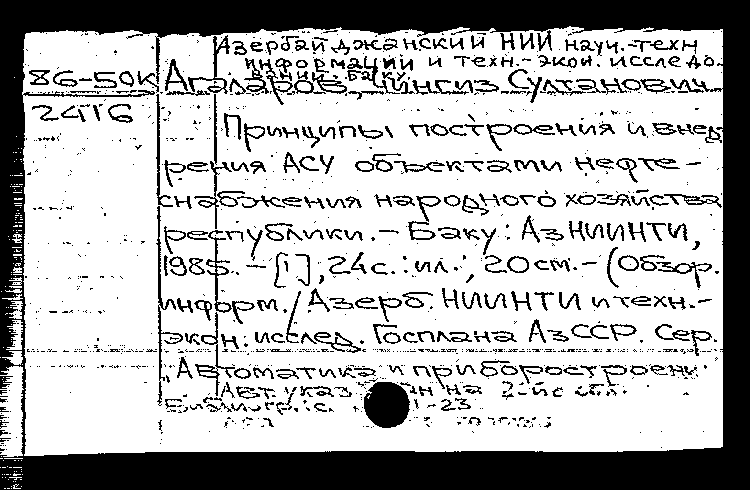 Азербайджанский НИИ науч.-техн
информации и техн.-экон. исследо-
ваний. Баку
86-50К Агаларов, Чингиз Султанович
24116
Принципы построения и внед
рения АСУ объектами нефте-
снабжения народного хозяйства
республики. - Баку: АзНИИНТИ,
1985. - [1], 24 с.: ил.; 20 см. - (Обзор.
информ./Азерб. НИИНТИ и техн.-
экон. исслед. Госплана АзССР. Сер.
"Автоматика и приборостроени
Авт. указан на 2-й с обл.
Библиогр.: с. 21-23